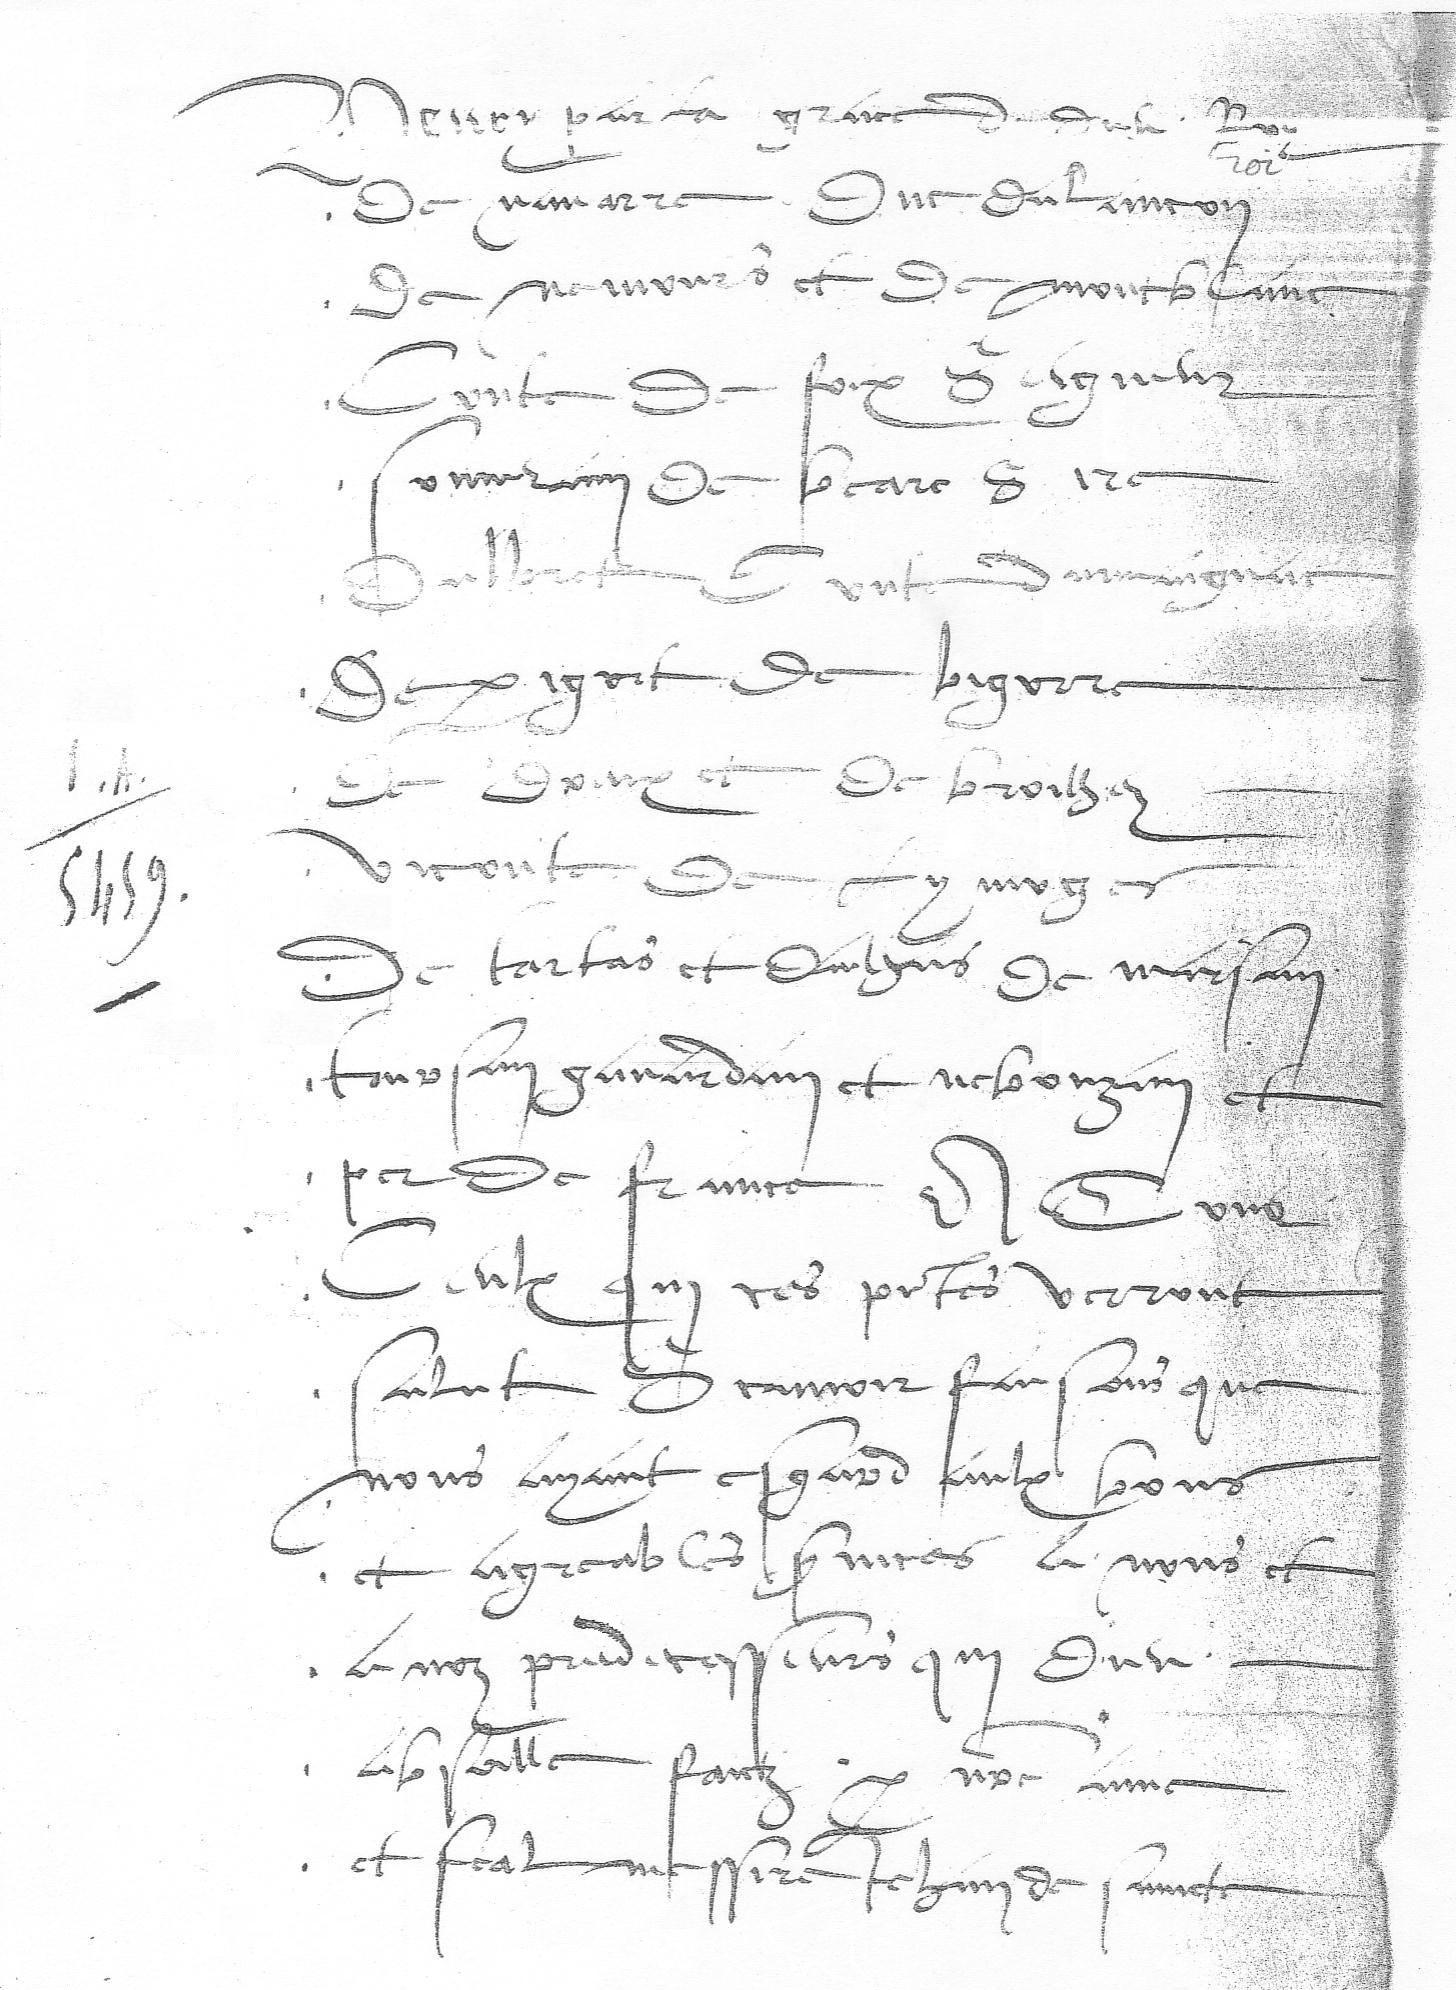 Henry par la grace de dieu Roy
roi
de navarre Duc dalancon
de nemours et de montblanc
Conte de foix Seigneur
souverain de bearn Sire
Dalbret Conte darmaignac
de perigort de bigorre
de et de
Viconte de lymoges
I.A.
5459.
De tartas et dailhas de marsan
tursan gavardan et nebouzan et
per de france A Tous
Ceulx qui ces pntes verront
salut Scavoir faisons que
nous ayant esgard aulx bons
et agreables services a nous et
a noz predecesseurs qui dieu
absoille faictz p nre ame
et feal messire Jehan de saincte